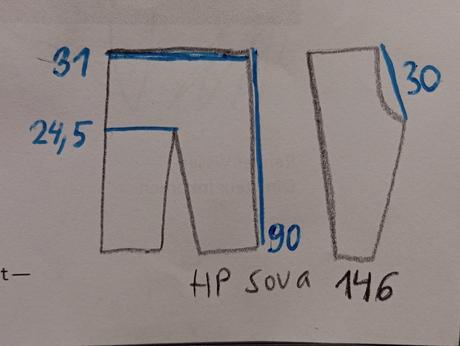 31
30
24,5
90
HP sova 146
t—